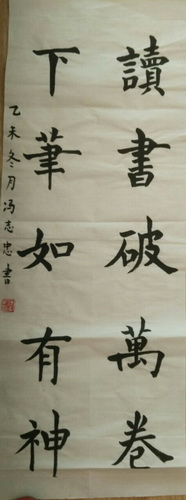 讀書破萬卷
下筆如有神
乙未冬月冯志忠書